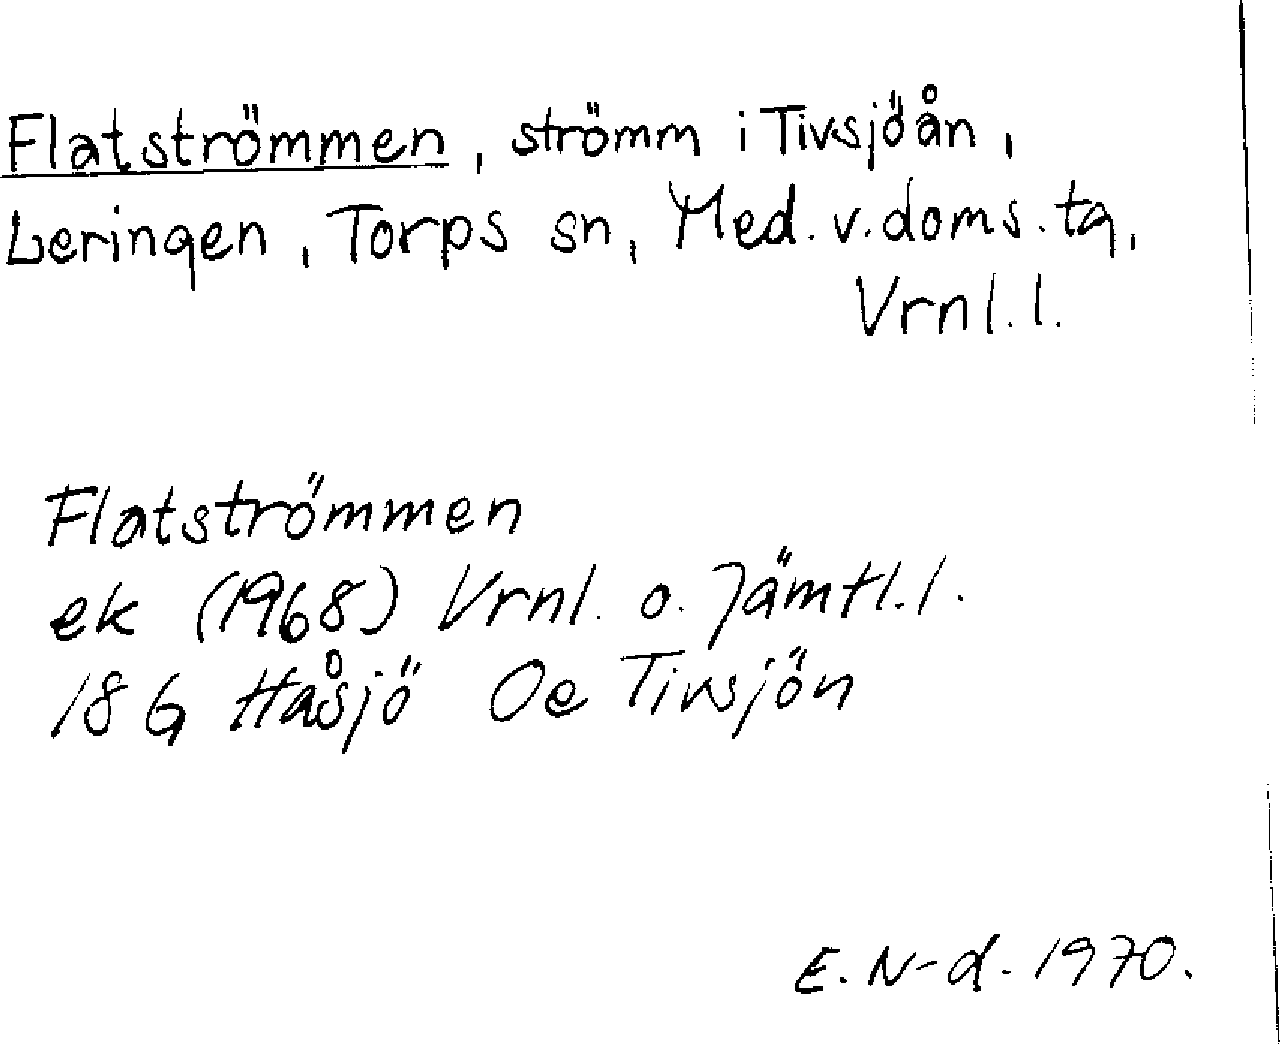 Flatströmmen, strömm i Tivsjöån,
Leringen, Torps sn, Med. v. doms. tg,
Vrnl. l.
Flatströmmen
ek (1968) Vrnl. o. Jämtl. l.
18 G Håsjö Oe Tivsjön
E. N-d. 1970.